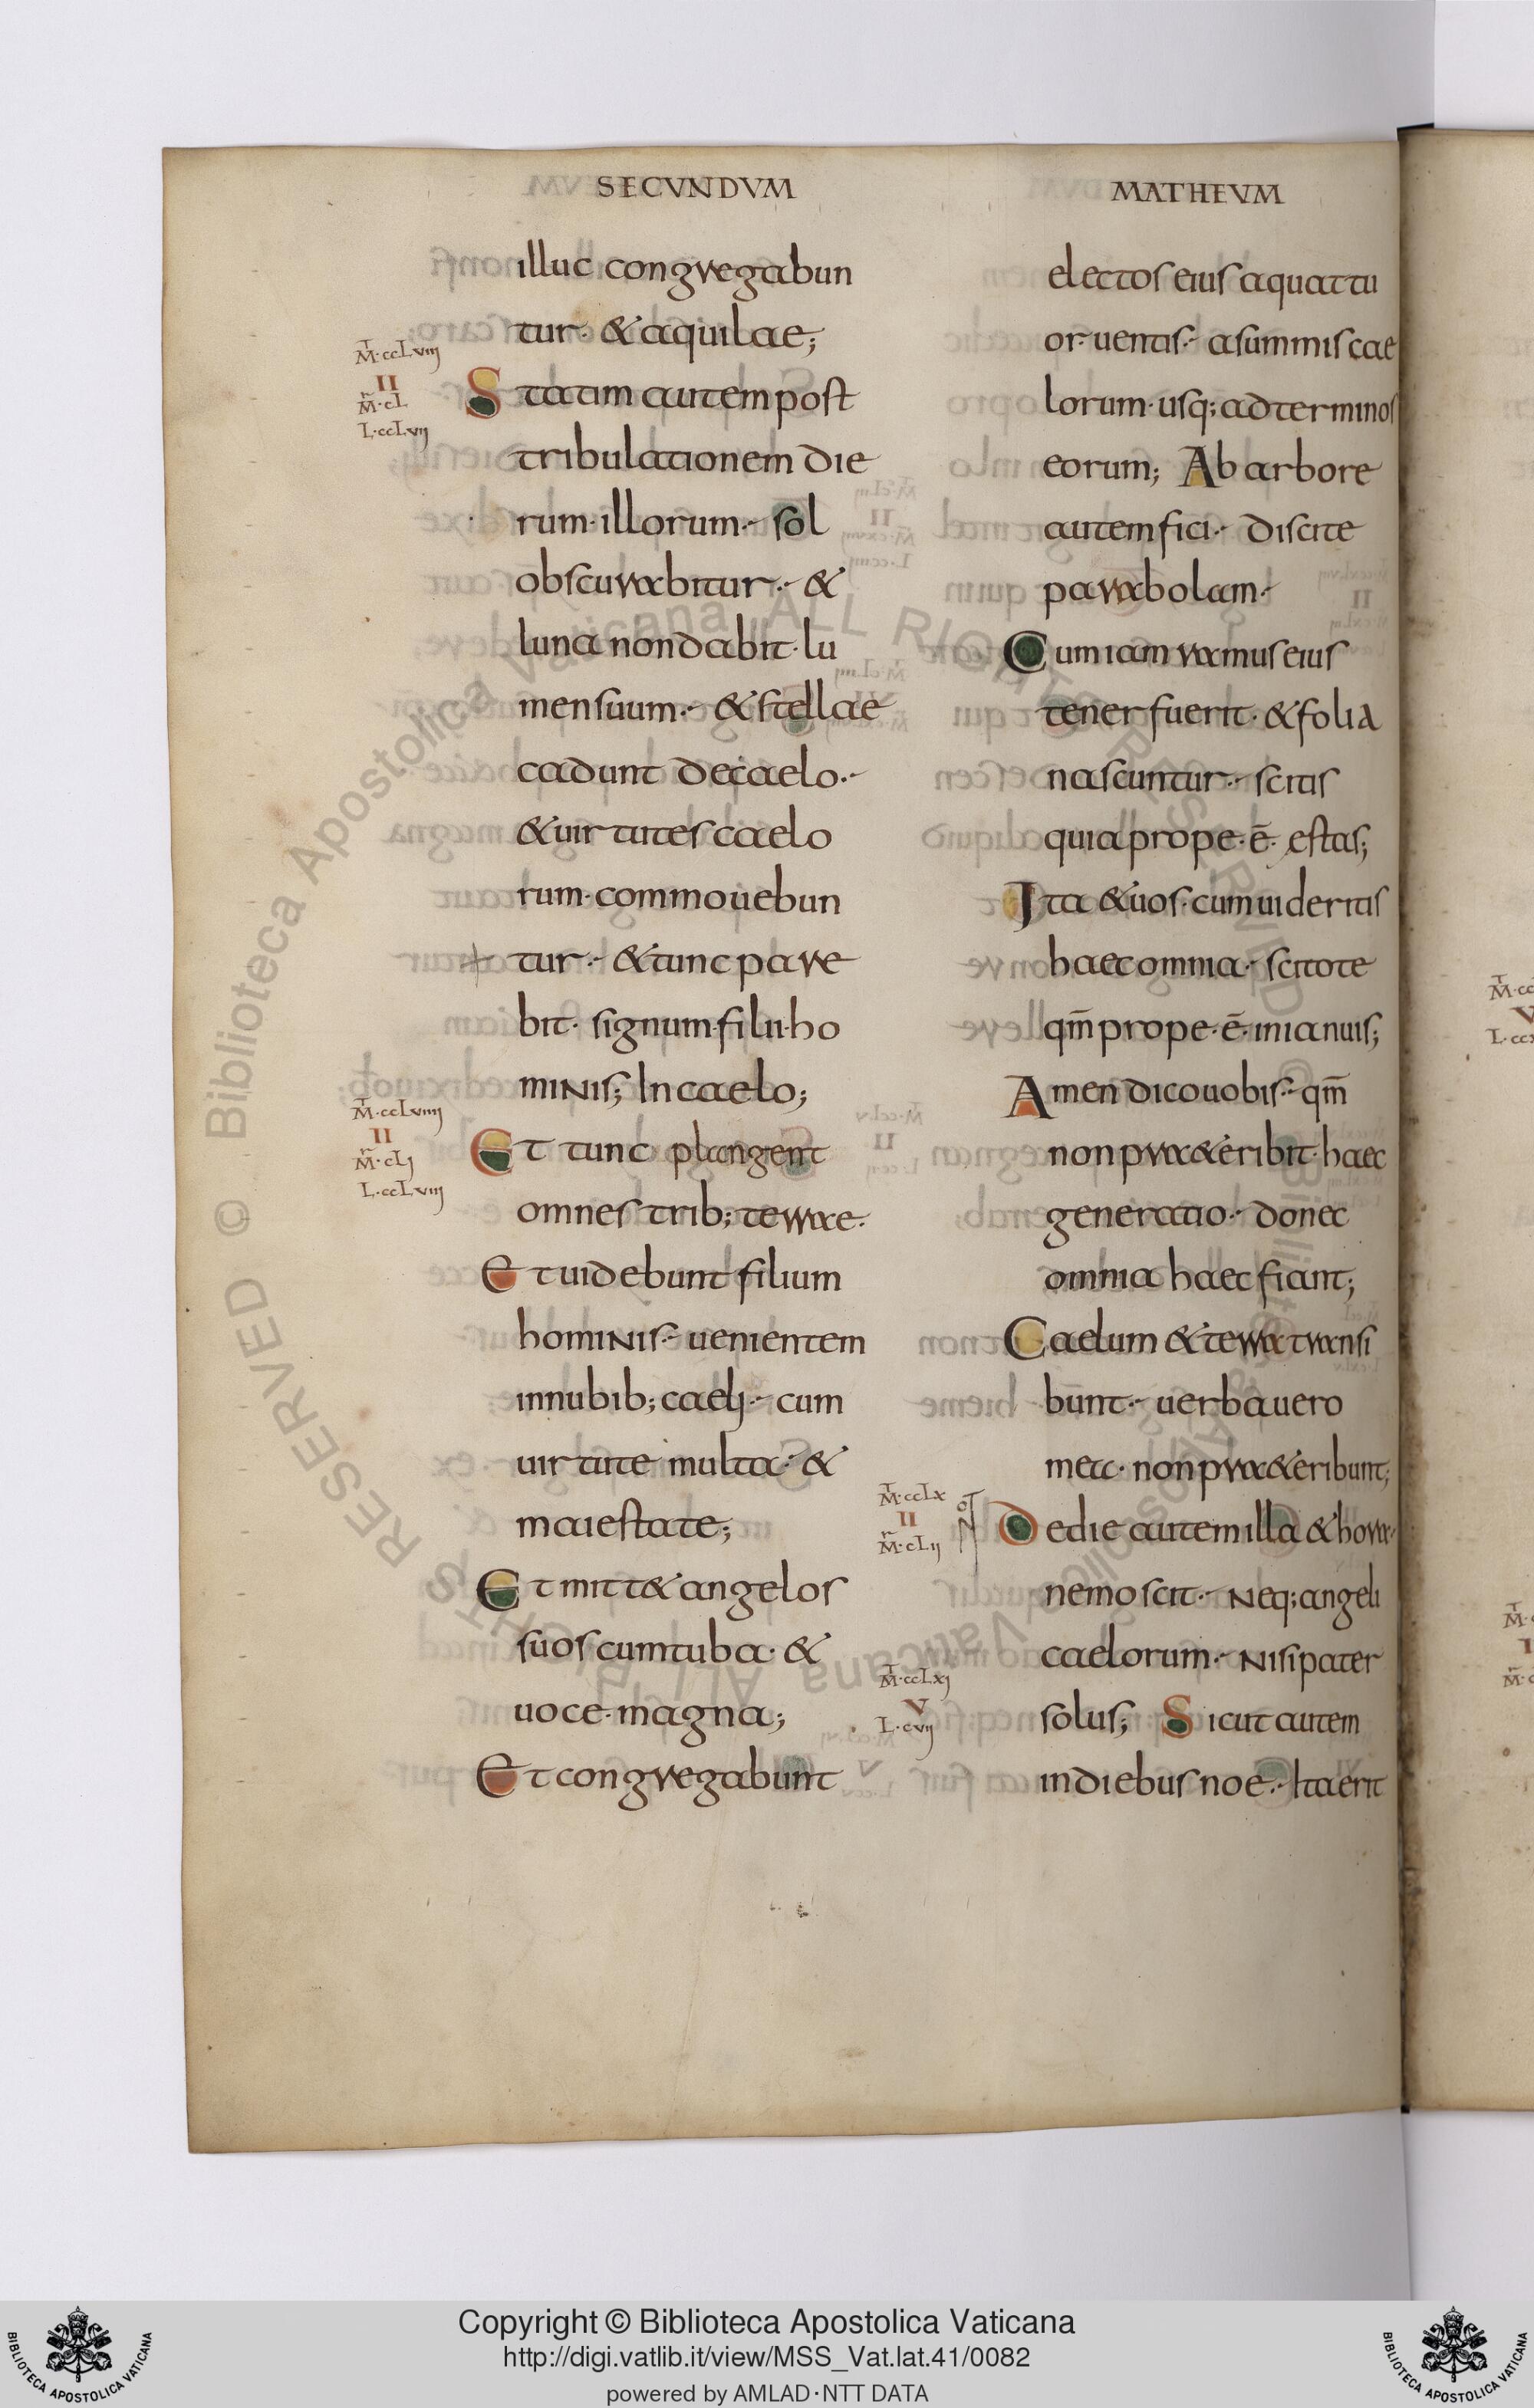 SECVNDVM
illuc congregabun
tur· & aquilae;
M·ccLviii
II
M·cL
L·ccLvii
Statim autem post
tribulationem die
rum·illorum·- sol
obscurabitur·- &
luna non dabit·lu
men suum·- & stellae
cadunt de caelo·-
& uirtutes caelo
rum·commouebun
tur·- & tunc pare
bit· signum·filii·ho
minis; In caelo;
M·ccLviiii
II
M·cLi
L·ccLviii
Et tunc plangent
omnes trib; terrae·
Et uidebunt filium
hominis·- uenientem
in nubib; caeli·- cum
uirtute multa·- &
maiestate;
Et mitt& angelos
suos cum tuba· &
uoce·magna;
Et congregabunt
MATHEVM
electos eius a quattu
or·uentis·- a summis cae
lorum·usq; ad terminos
eorum; Ab arbore
autem fici·- discite
parabolam·-
Cum iam ramus eius
tener fuerit·& folia
nascuntur·- scitis
quia prope·ē· ęstas;
Ita & uos·cum uideritis
haec omnia·- scitote
qm̄ prope·ē·in ianuis;
Amen dico uobis·- qm̄
non pra&eribit·haec
generatio·- donec
omnia haec fiant;
Caelum & terra transi
bunt·- uerba uero
mea· non pra&eribunt;
M·ccLx
II
M·cLii
De die autem illa & hora·
nemo scit·- Neq; angeli
caelorum·- Nisi pater
M·ccLxi
V
L·cvii
solus; Sicut autem
in diebus noe·- Ita erit
Copyright © Biblioteca Apostolica Vaticana
http://digi.vatlib.it/view/MSS_Vat.lat.41/0082
powered by AMLAD·NTT DATA
BIBLIOTECA APOSTOLICA VATICANA
BIBLIOTECA APOSTOLICA VATICANA
© Biblioteca Apostolica Vaticana ALL RIGHTS RESERVED
© Biblioteca Apostolica Vaticana ALL RIGHTS RESERVED